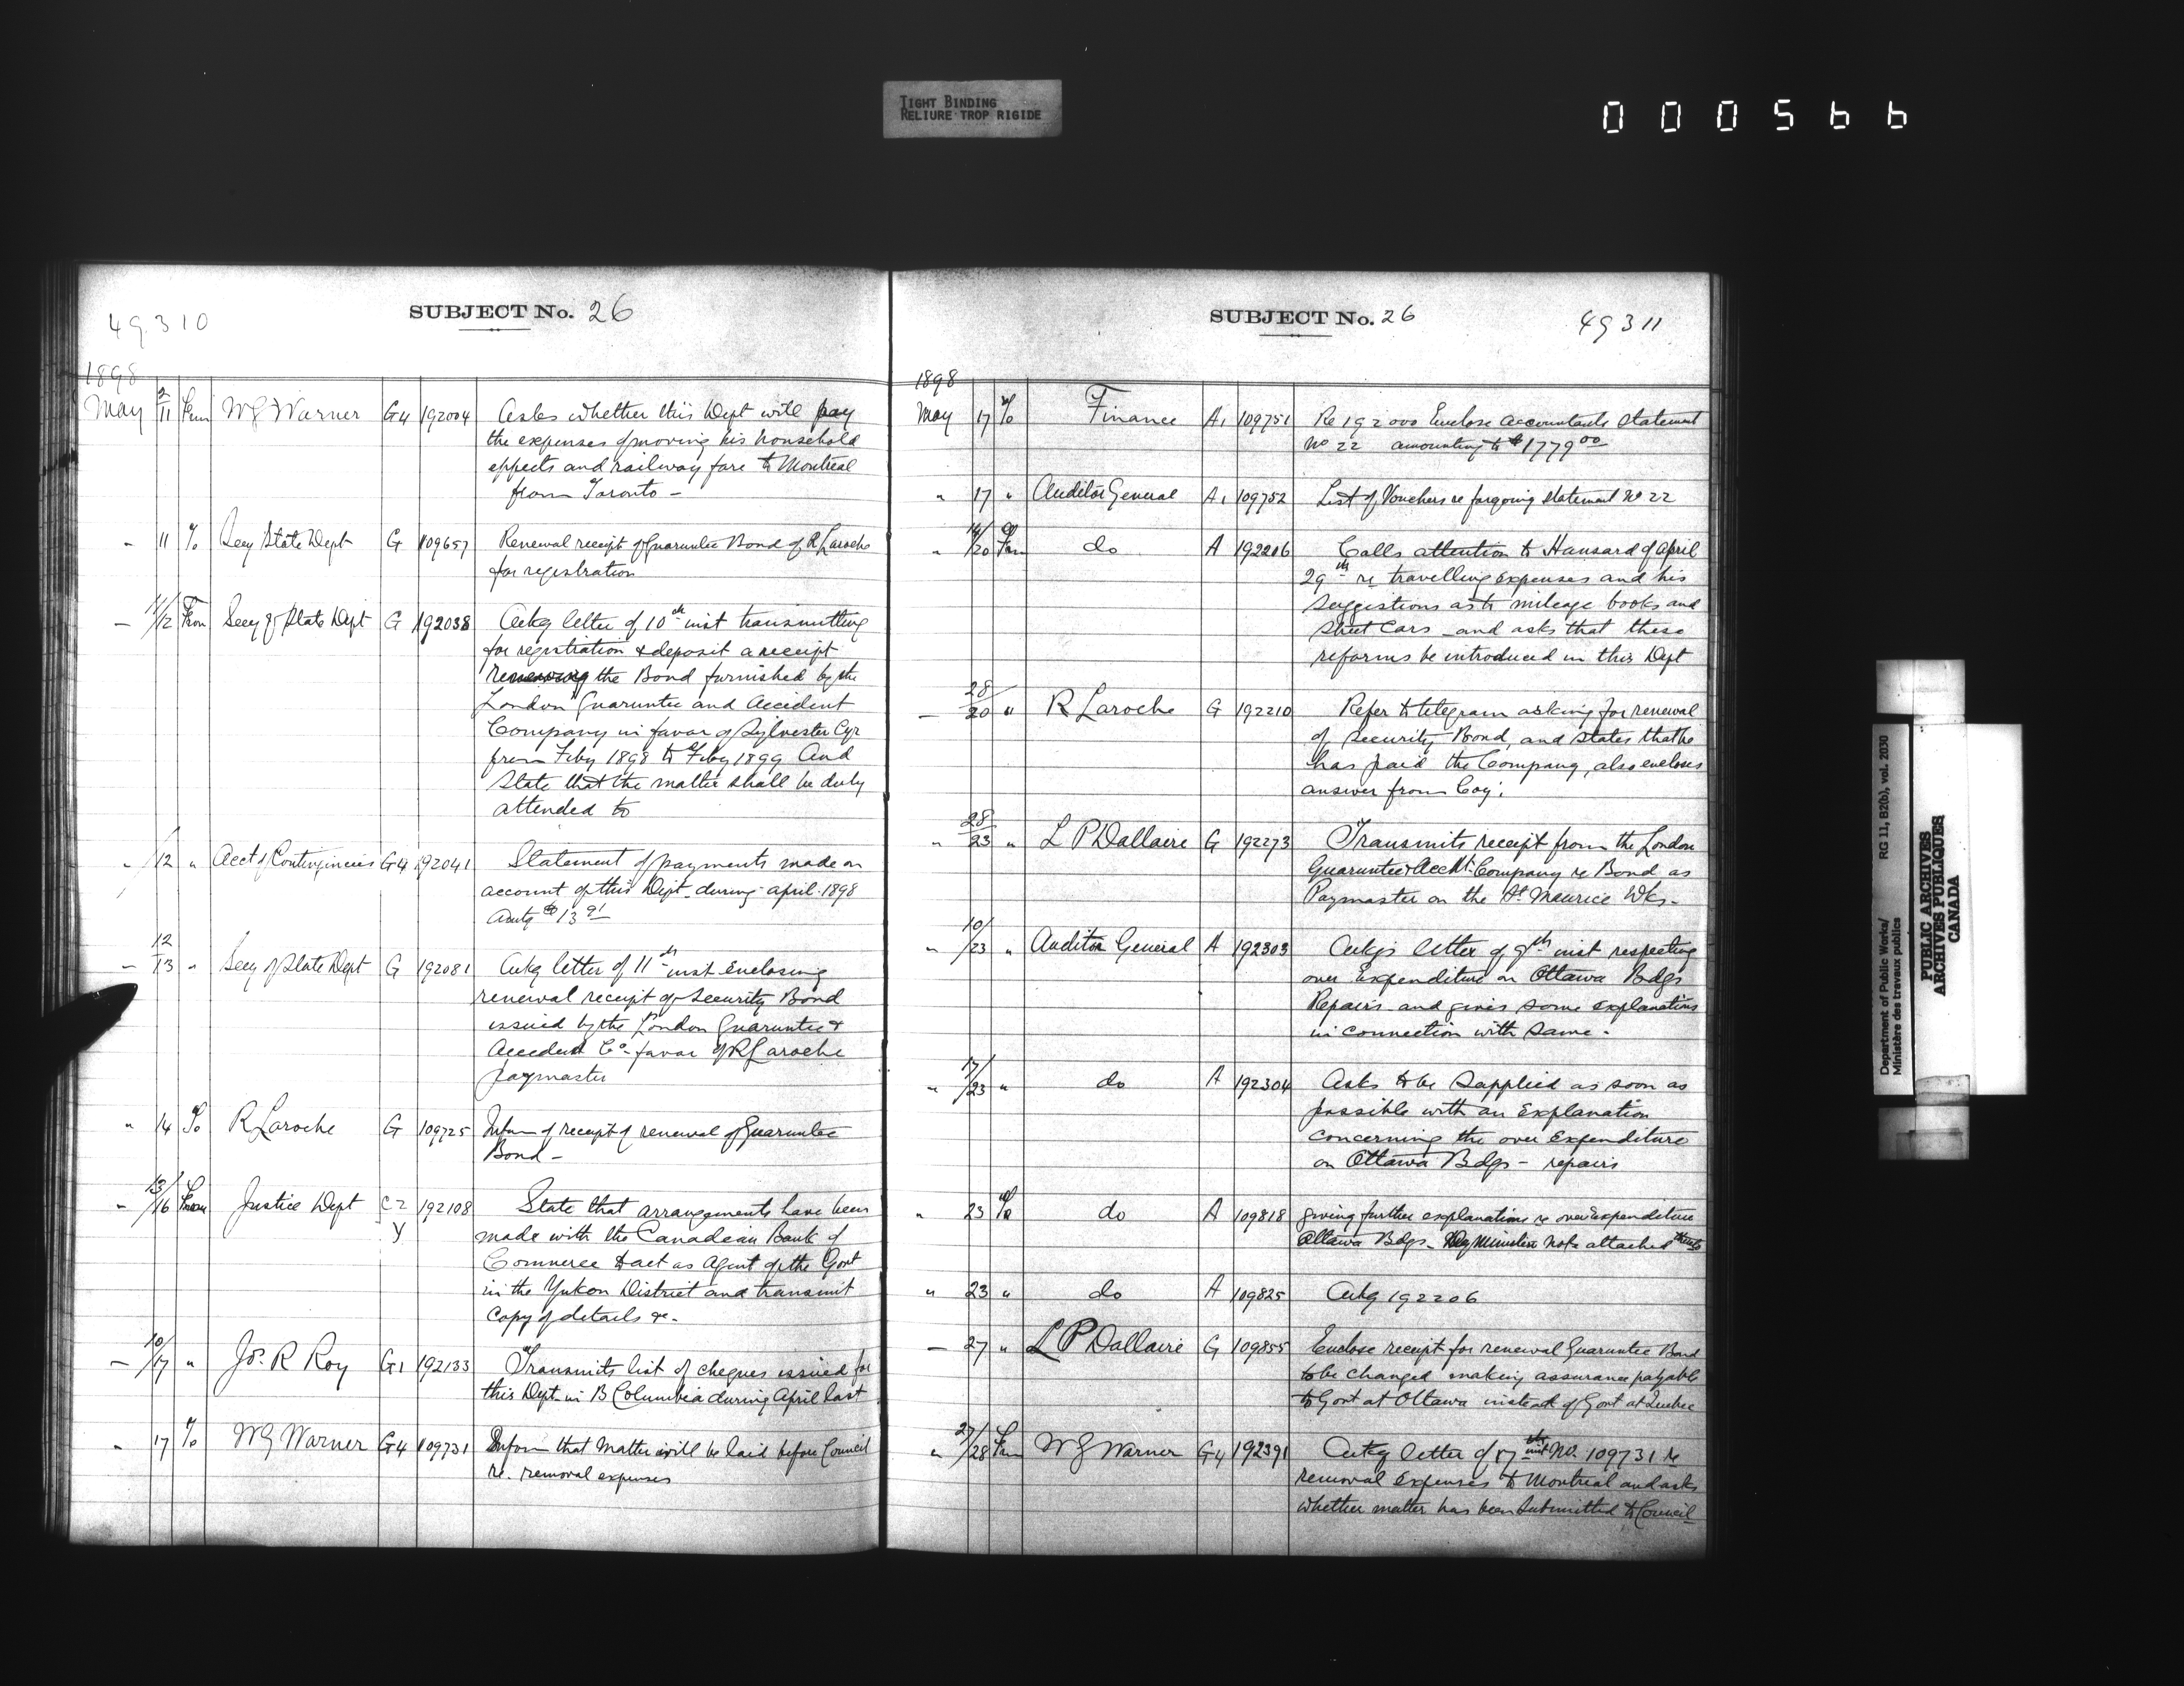 TIGHT BINDING
RELIURE TROP RIGIDE
000566
49310
SUBJECT No. 26
1898
May 2/11 From W G Warner G4 192004 Asks whether this Dept will pay
the expenses of moving his household
effects and railway fare to Montreal
from Toronto -
" 11 To Secy State Dept G 109657 Renewal receipt of Guaruntee Bond of R Laroche
for registration
- 11/12 From Secy of State Dept G 192038 Ackg letter of 10th inst transmitting
for registration & deposit a receipt
renewing the Bond furnished by the
London Guaruntee and Accident
Company in favor of Sylvester Cyr
from Feby 1898 to Feby 1899 And
State that the matter shall be duly
attended to
" /12 " Acct of Contingencies G4 192041 Statement of payments made on
account of this Dept. during April 1898
Amtg $13 91
- 12/13 " Secy of State Dept G 192081 Ackg letter of 11th inst Enclosing
renewal receipt of Security Bond
issued by the London Guaruntee &
Accident Co. favor of R Laroche
paymaster
" 14 To R Laroche G 109725 Inform of receipt of renewal of Guaruntee
Bond -
" 13/16 From Justice Dept C2 192108 State that arrangements have been
y made with the Canadian Bank of
Commerce to act as Agent of the Govt
in the Yukon District and transmit
Copy of details &c.
- 10/17 " Jos. R Roy G1 192133 Transmits list of cheques issued for
this Dept. in B Columbia during April last
" 17 To W G Warner G4 109731 Inform that matter will be laid before Council
re. removal expenses
SUBJECT No. 26
49311
1898
May 17 To Finance A1 109751 Re 192000 Enclose Accountants Statement
No 22 amounting to $1779 00
" 17 " Auditor General A1 109752 List of Vouchers re forgoing statement No 22
" /20 From do A 192206 Calls attention to Hansard of April
29th re travelling Expenses and his
Suggestions as to mileage books and
Street Cars - and asks that these
reforms be introduced in this Dept
- 28/20 " R Laroche G 192210 Refer to telegram asking for renewal
of Security Bond, and states that he
has paid the Company, also encloses
answer from Coy.
" 28/23 " L P Dallaire G 192273 Transmits receipt from the London
Guaruntee & Accdt. Company re Bond as
Paymaster on the St Maurice Wks -
" 10/23 " Auditor General A 192303 Ackgs letter of 9th inst respecting
over Expenditure on Ottawa Bdgs
Repairs and gives some explanations
in connection with same -
" 17/23 " do A 192304 Asks to be Supplied as soon as
possible with an Explanation
concerning the over Expenditure
on Ottawa Bdgs - repairs
" 23 To do A 109818 giving further explanations re overexpenditure
Ottawa Bdgs - Dep Minister note attached thereto
" 23 " do A 109825 Ackg 192206
- 27 " L P Dallaire G 109855 Enclose receipt for renewal Guaruntee Bond
to be changed making assurance payable
to Govt at Ottawa instead of Govt at Quebec
" 27/28 From W G Warner G4 192391 Ackg letter of 17th inst No. 109731 re
removal Expenses to Montreal and asks
whether matter has been Submitted to Council
Department of Public Works/ RG 11, B2(b), vol. 2030
Ministère des travaux publics
PUBLIC ARCHIVES
ARCHIVES PUBLIQUES
CANADA